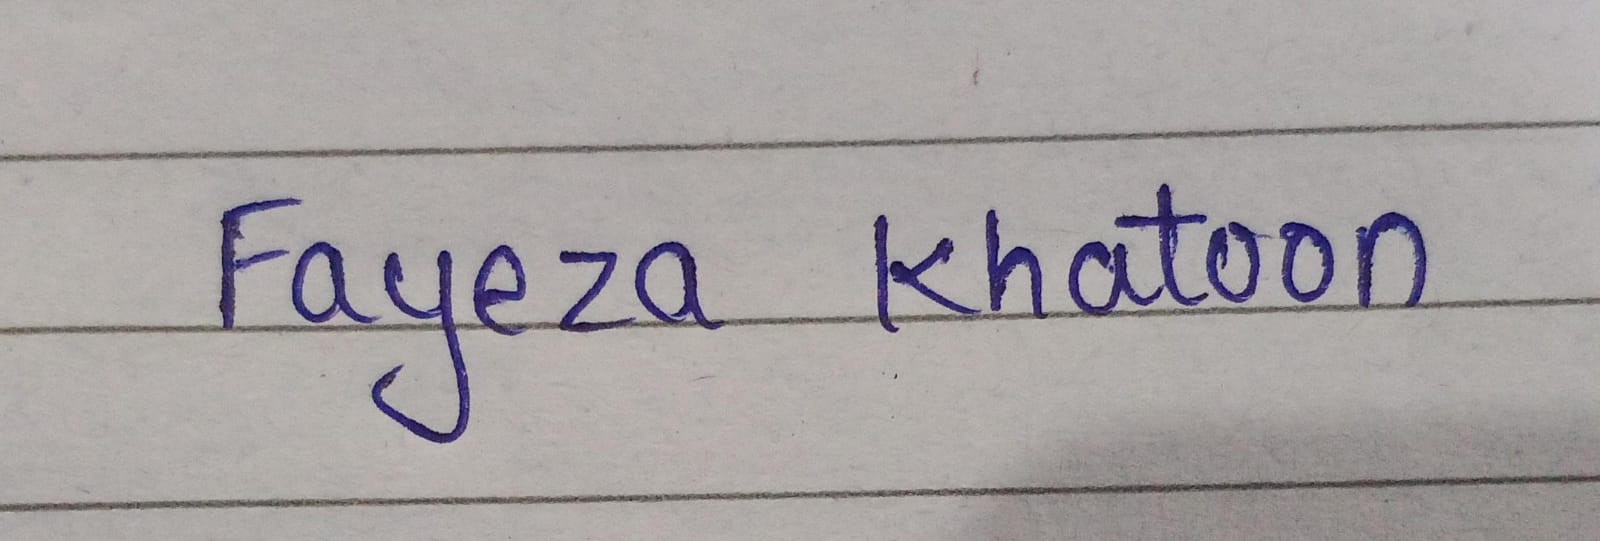 Fayeza Khatoon